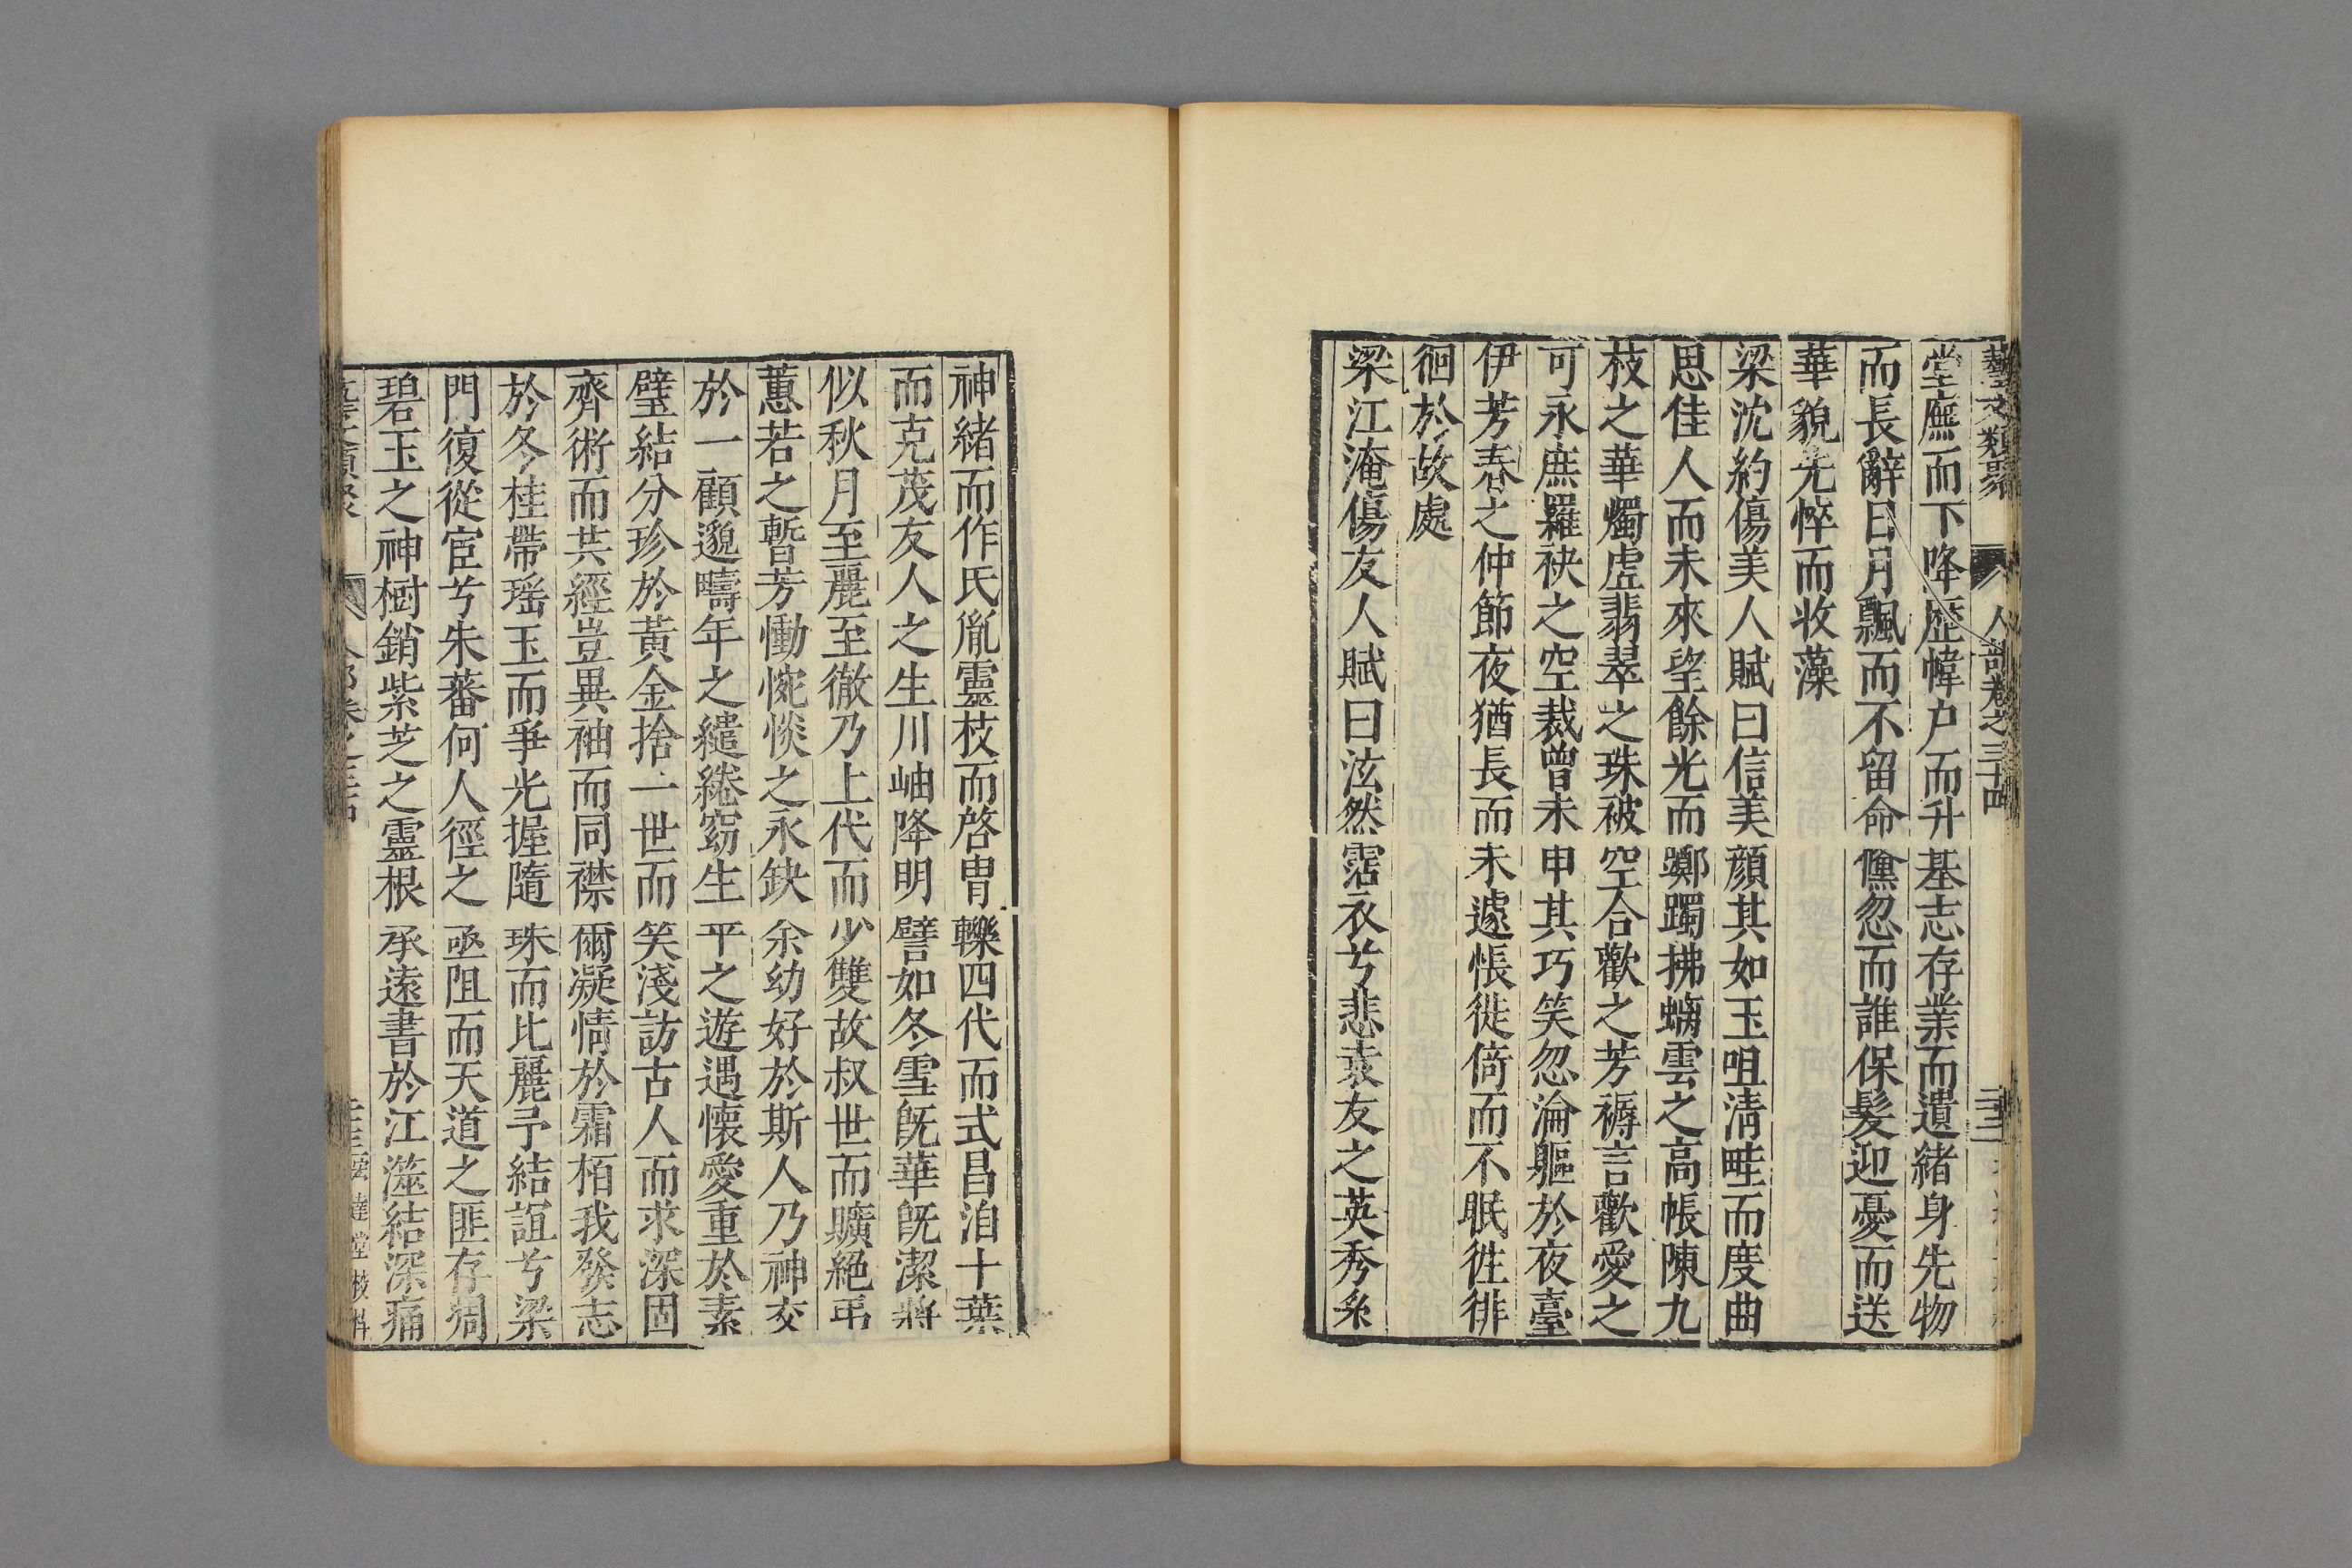 藝文類聚 人部卷之三十四
堂廡而下降歷幃户而升基志存業而遺緒身先物
而長辭日月飄而不留命儵忽而誰保髮迎憂而送
華貌先悴而收藻
梁沈約傷美人賦曰信美顔其如玉咀清畦而度曲
思佳人而未來望餘光而躑躅拂螭雲之高帳陳九
枝之華燭虛翡翠之珠被空合歡之芳褥言歡愛之
可永庶羅袂之空裁曾未申其巧笑忽淪軀於夜臺
伊芳春之仲節夜猶長而未遽悵徙倚而不眠徃徘
徊於故處
梁江淹傷友人賦曰泫然霑衣兮悲袁友之英秀系
神緒而作氏胤靈枝而啓胄轢四代而式昌洎十葉
而克茂友人之生川岫降明譬如冬雪旣華旣潔將
似秋月至麗至徹乃上代而少雙故叔世而曠絕弔
蕙若之暫芳慟惋惔之永缺余幼好於斯人乃神交
於一顧邈疇年之繾綣窮生平之遊遇懐愛重於素
璧結分珍於黃金捨一世而笑淺訪古人而求深固
齊術而共經豈異袖而同襟爾凝情於霜栢我發志
於冬桂帶瑶玉而爭光握隨珠而比麗予結誼兮梁
門復從宦兮朱蕃何人徑之亟阻而天道之匪存凋
碧玉之神樹銷紫芝之靈根承遠書於江澨結深痛